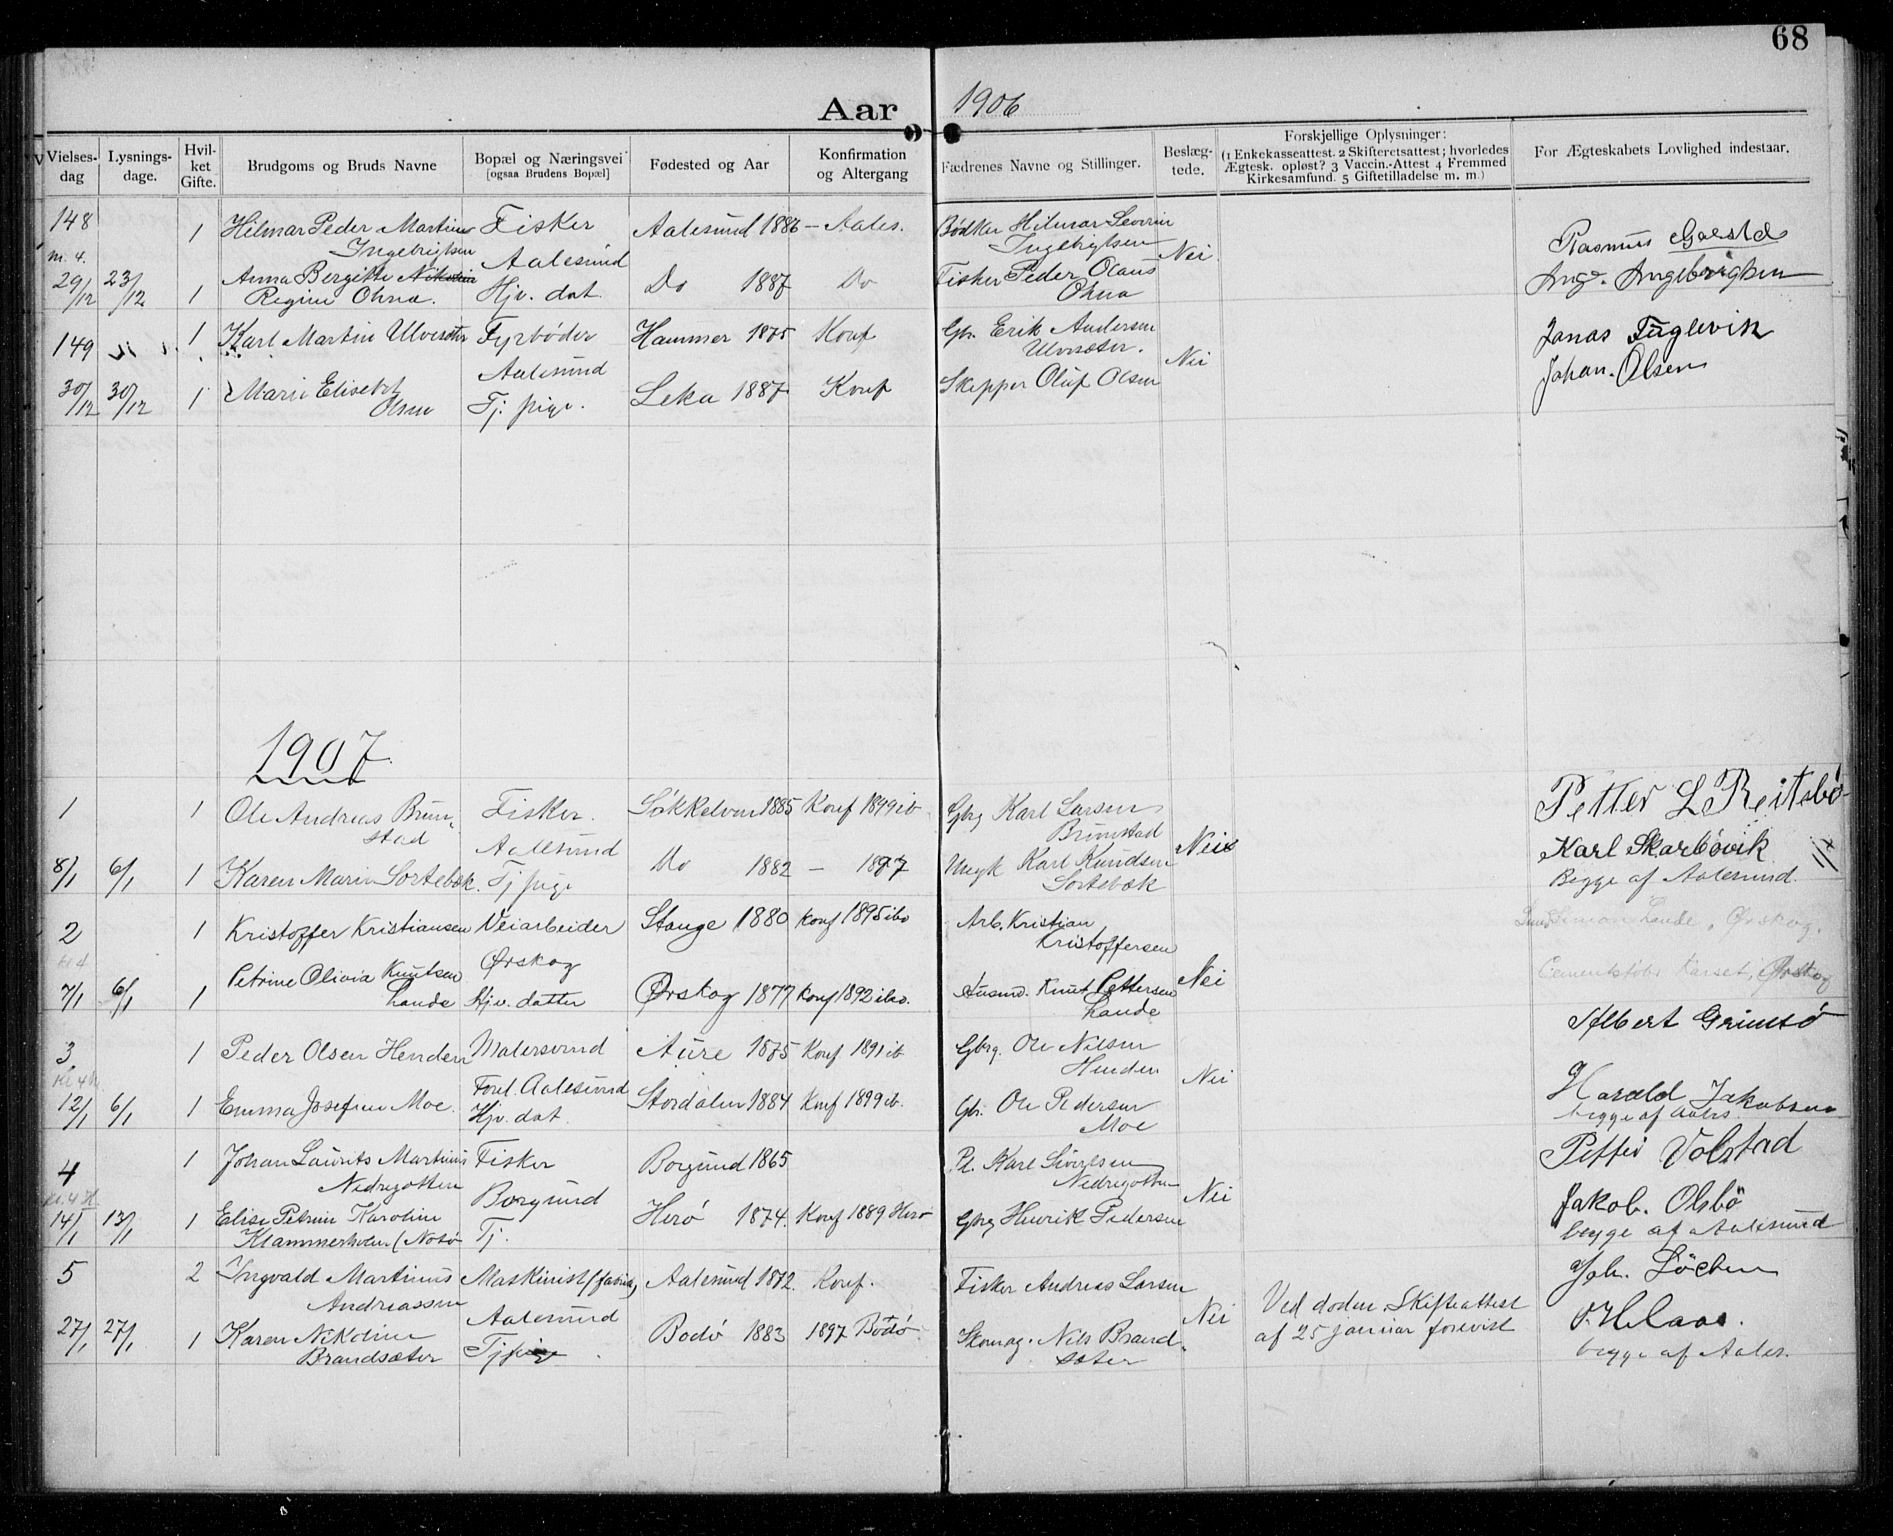 68
Aar 1906
Vielses-dag
Lysnings-dage.
Hvil-ket Gifte.
Brudgoms og Bruds Navne
Bopæl og Næringsvei [ogsaa Brudens Bopæl]
Fødested og Aar
Konfirmation og Altergang
Fædrenes Navne og Stillinger.
Beslæg-tede.
Forskjellige Oplysninger: (1 Enkekasseattest. 2 Skifteretsattest; hvorledes Ægtesk. opløst? 3 Vaccin.-Attest 4 Fremmed Kirkesamfund. 5 Giftetilladelse m. m.)
For Ægteskabets Lovlighed indestaar.
148 1 Hilmar Peder Martin Fisker Aalesund 1886 - Aales. Bødker Hilmar Severin Rasmus
m. 4. Ingebrigtsen Aalesund Ingebrigtsen Nei
29/12 23/12 1 Anna Bergitte Nikoline Hjv. dat. Do 1887 Do Fisker Peder Olaus Ing. Ingebrigtsen
Regine Ohna. Ohna
149 1 Karl Martin Ulvesæter Fyrbøder Hammer 1875 Konf Gbr. Erik Andersen Jonas Fuglevik
Aalesund Ulvesæter. Nei Johan. Olsen
30/12 30/12 1 Marie Elisebet Tj. pige. Leka 1887 Konf Skipper Oluf Olsen
Olsen
1907
1 1 Ole Andreas Brun- Fisker. Søkkelven 1885 Konf 1899 ib Gbrg Karl Larsen Petter L Reitebø
stad Aalesund Brunstad Nei Karl Skarbøvik
8/1 6/1 1 Karen Marie Sortebæk. Tj pige Do 1882 - 1897 Karl Knudsen Begge af Aalesund.
Sortebæk
2 1 Kristoffer Kristiansen Veiarbeider Stange 1880 konf 1895 ibd Arb. Kristian Simon Lande, Ørskog.
Ørskog Kristoffersen
7/1 6/1 1 Petrine Olivia Knutsen Hjv. datter Ørskog 1877 konf 1892 ibd. Husmd. Knut Pettersen Nei Karset, Ørskog
Lande Lande
3 1 Peder Olsen Henden Malersvend Aure 1875 Konf 1891 ib Gbrg. Ole Nilsen Albert Grimsø
Kl 4 Forel. Aalesund Henden Nei Harald Jakobsen
12/1 6/1 1 Emma Josefine Moe. Hjv. dat. Stordalen 1884 Konf 1899 ib. Gbr. Ole Pedersen begge af Aales.
Moe
4 1 Johan Laurits Martinus Fisker Borgund 1865 Karl Sivertsen Petter Volstad
Nedregotten Borgund Nedregotten Nei Jakob. Olsbø
14/1 13/1 1 Elise Petrine Karoline Tj. Herø 1874. Konf 1889 Herø Gbrg Henrik Pedersen begge af Aalesund
Klammerholm (Notø
5 2 Ingvald Martinus Maskinist (fabrik) Aalesund 1872. Konf. Fisker Andreas Larsen Joh. Løchen
Andreassen Aalesund Nei Ved døden. Skifteattest
27/1 27/1 1 Karen Nikoline Tj pige Bodø 1883 1897 Bodø Skomag. Nils Brand- af 25 januar forevist
Brandsæter sæter begge af Aales.